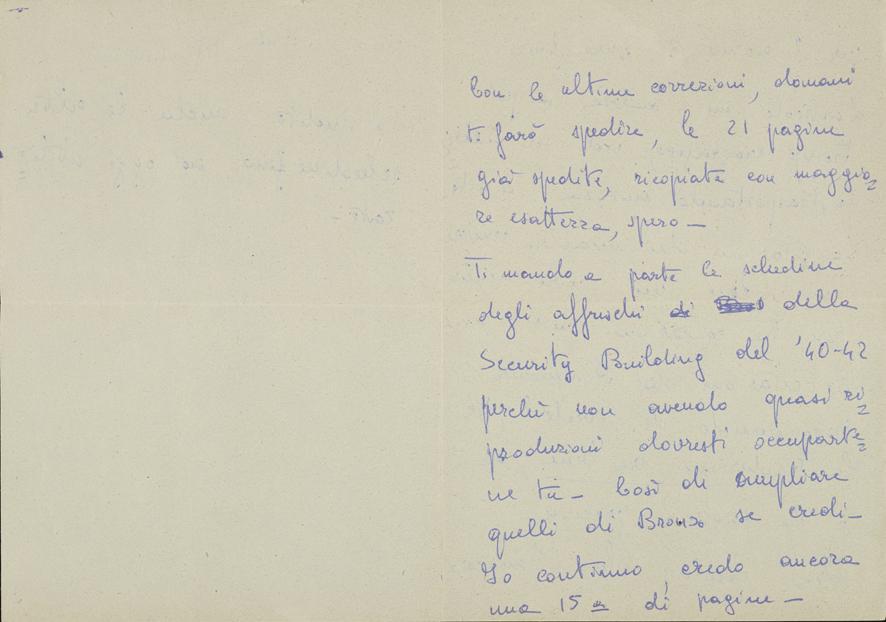 Con le ultime correzioni, domani
ti farò spedire, le 21 pagine
già spedite, ricopiate con maggio=
re esattezza, spero —
Ti mando a parte le schedine
degli affreschi di della
Security Building del '40-42
perchè non avendo quasi ri=
produzioni dovresti occuparte=
ne tu — Così di ampliare
quelli di Bronx se credi —
Io continuo, credo ancora
una 15 a di pagine —